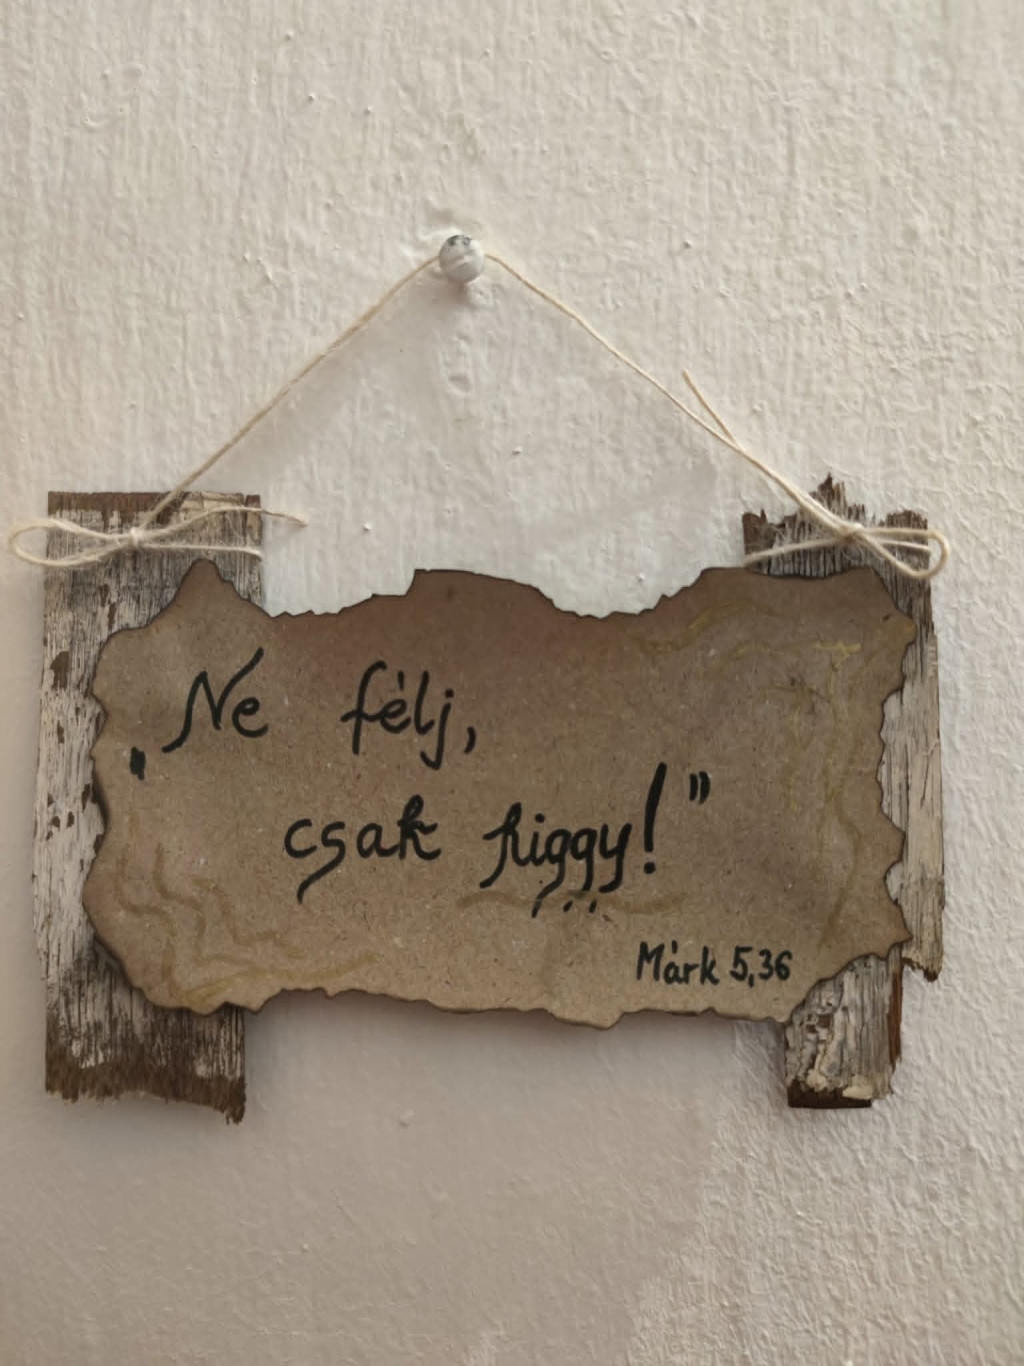 „Ne félj,
csak higgy!"
Márk 5,36